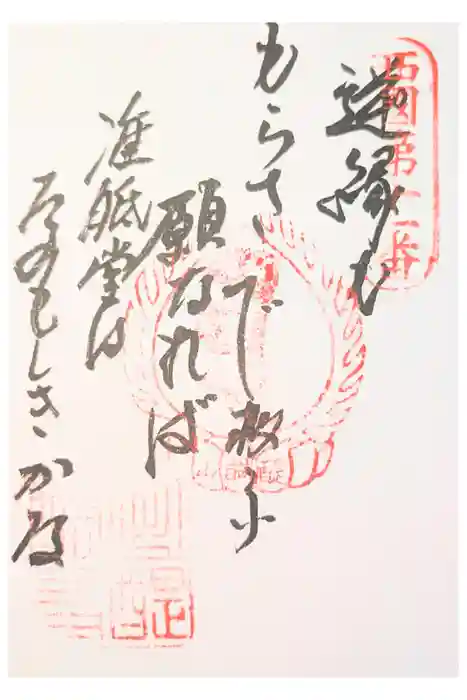 西國第十一番
逆縁も
もらさで救ふ
願なれば
准胝堂は
たのもしきかな